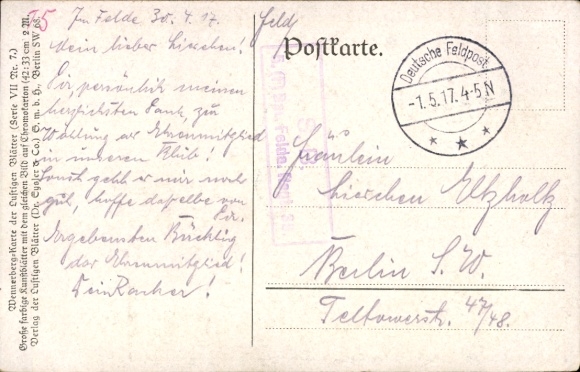 Im Felde 30.4.17.
Mein lieber Lieschen!
Dir, persönlich meinen
herzlichsten Dank, zu
Wahlung als Ehrenmitglied
in unseren Klub!
Sonst geht es mir noch
gut, hoffe dasselbe von
Dir.
Ergebensten
das Ehrenmitglied!
Dein
Feld
Postkarte.
Deutsche Feldpost
-1.5.17.4-5N
Fräulein
Lieschen Elzholz
Berlin S.W.
Teltowerstr. 47/48.
Wennerberg-Karte der Lustigen Blätter (Serie VII Nr. 7.)
Große farbige Kunstblätter mit dem gleichen Bild auf Chromokarton (42:33 cm 2 M.
Verlag der Lustigen Blätter (Dr. Eysler & Co.) G. m. b. H., Berlin SW 68.